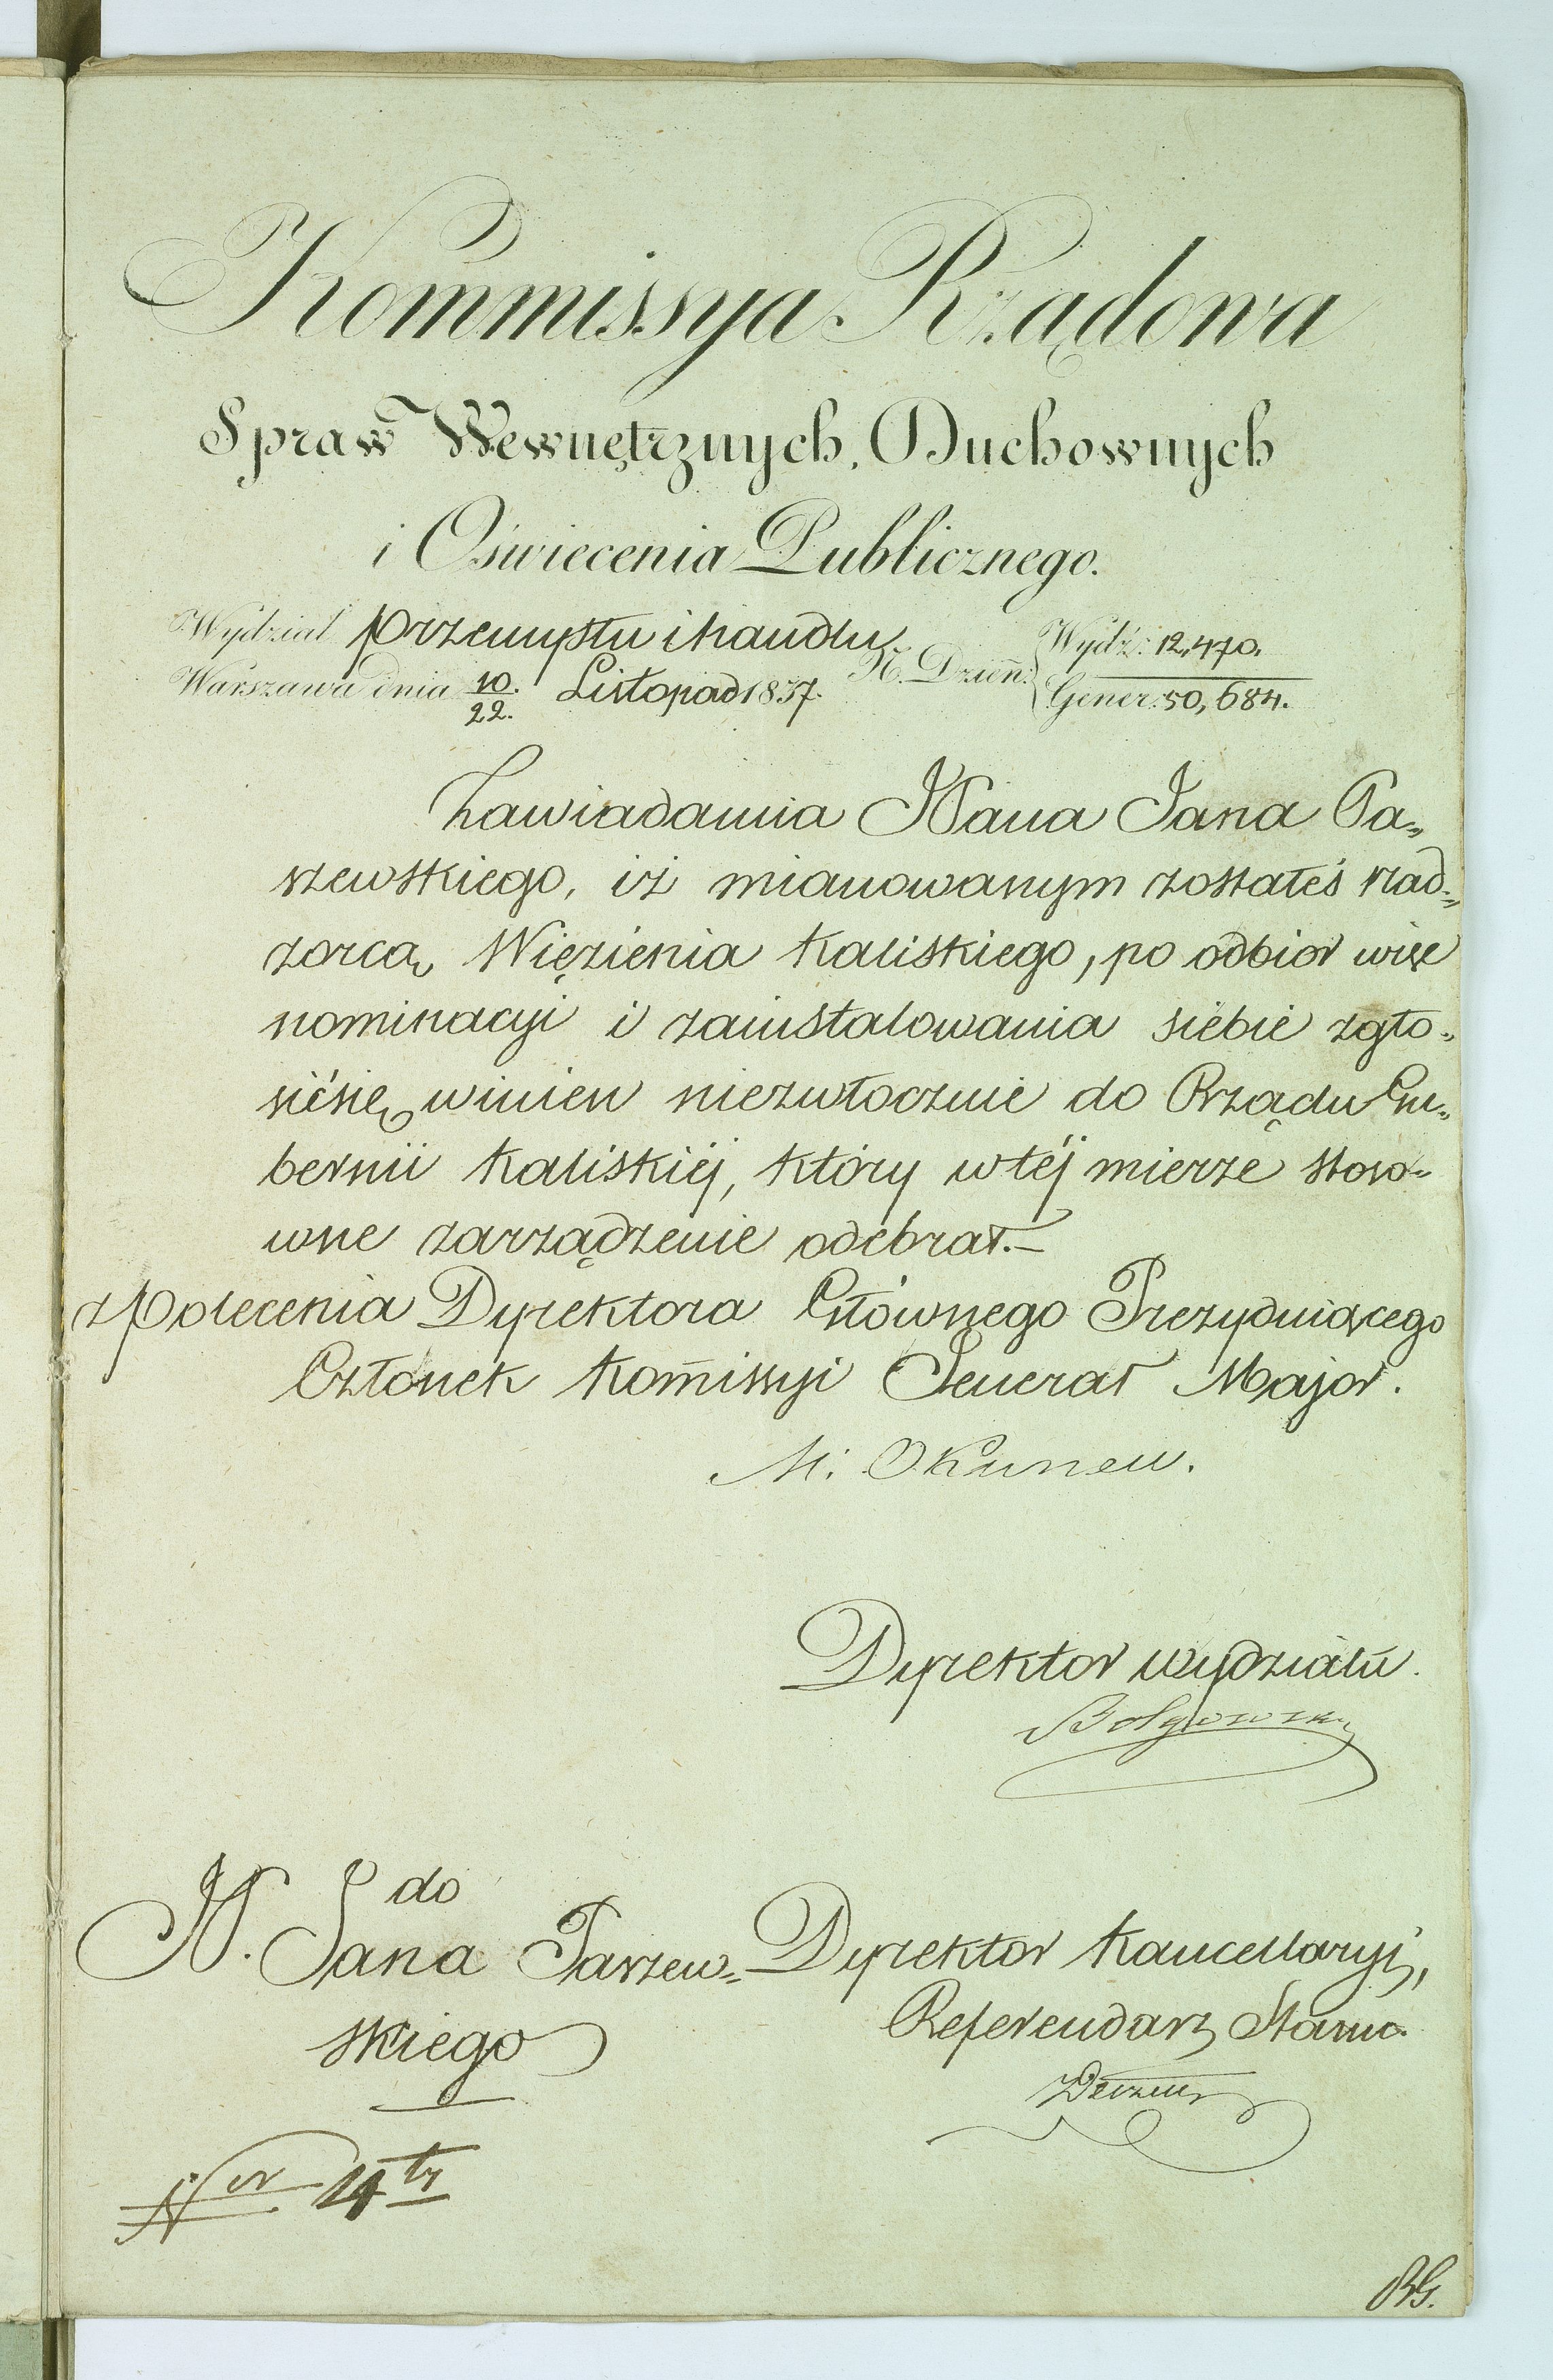 Kommissya Rządowa
Spraw Wewnętrznych, Duchownych
i Oświecenia Publicznego.
Wydział przemysłu i handlu
Warszawa dnia 10./22. Listopad 1837. N. Dzień: Wydź: 12,470.
Gener: 50,684.
Zawiadamia JPana Jana Pa-
szewskiego, iż mianowanym zostałeś Nad-
zorcą Więzienia Kaliskiego, po odbiór więc
nominacyi i zainstalowania siebie zgło-
sić się winien niezwłocznie do Rządu Gu-
bernii Kaliskiéj, który w téj mierze stoso-
wne zarządzenie odebrał.–
z polecenia Dyrektora Głównego Prezydującego
Członek Kom̄issyi Generał Major.
M. Okunew.
Dyrektor wydziału.
do
W. Jana Paszew-
skiego
Dyrektor Kancellaryi,
Referendarz Stanu.
Ner 4ty